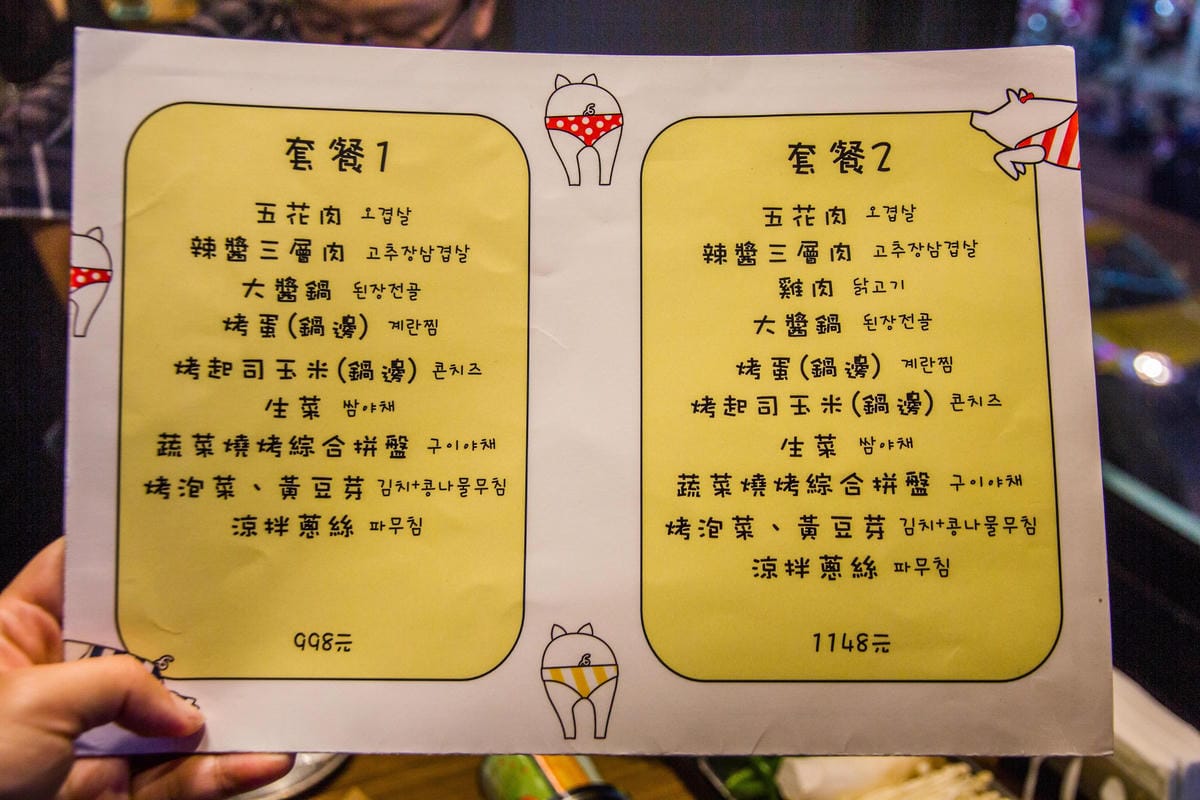 套餐1
五花肉 오겹살
辣醬三層肉 고추장삼겹살
大醬鍋 된장전골
烤蛋(鍋邊) 계란찜
烤起司玉米(鍋邊) 콘치즈
生菜 쌈야채
蔬菜燒烤綜合拼盤 구이야채
烤泡菜、黃豆芽 김치+콩나물무침
涼拌蔥絲 파무침
998元
套餐2
五花肉 오겹살
辣醬三層肉 고추장삼겹살
雞肉 닭고기
大醬鍋 된장전골
烤蛋(鍋邊) 계란찜
烤起司玉米(鍋邊) 콘치즈
生菜 쌈야채
蔬菜燒烤綜合拼盤 구이야채
烤泡菜、黃豆芽 김치+콩나물무침
涼拌蔥絲 파무침
1148元